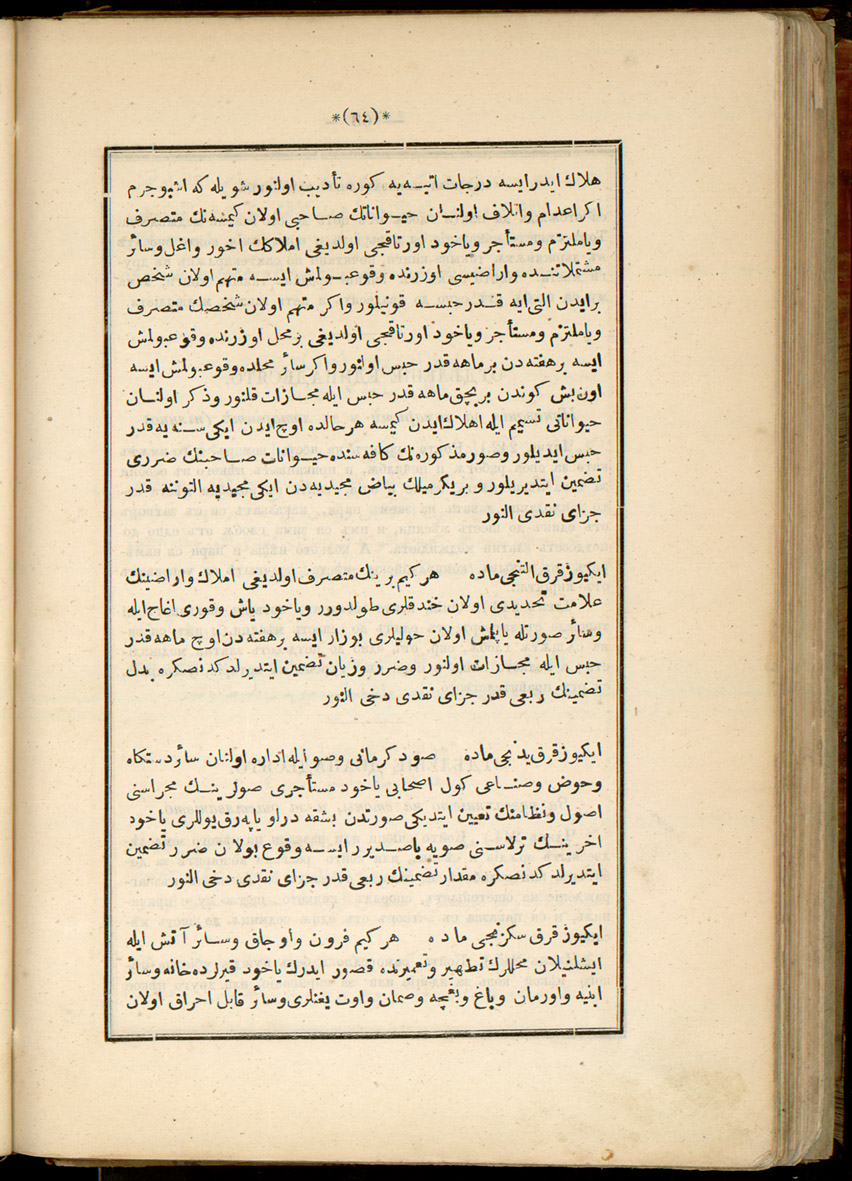 *(٦٤)*
هلاك ایدرایسه درجات اتیه‌یه كوره تأدیب اولنور شویله كه اشبوجرم
اكراعدام واتلاف اولنان حیواناتك صاحبی اولان كیمسه‌نك متصرف
ویاملتزم ومستأجر ویاخود اورتاقجی اولدیغی املاكك اخور واغل وسائر
مشتملاتنده واراضیسی اوزرنده وقوعبولمش ایسه متهم اولان شخص
برایدن التی‌ایه قدر حبسه قونیلور واكر متهم اولان شخصك متصرف
ویاملتزم ومستأجر ویاخود اورتاقجی اولدیغی بر محل اوزرنده وقوعبولمش
ایسه برهفته‌دن برماهه قدر حبس اولنور واكر سائر محلده وقوعبولمش ایسه
اون‌بش كوندن بربچق ماهه قدر حبس ایله مجازات قلنور وذكر اولنان
حیواناتی تسمیم ایله اهلاك ایدن كیمسه هرحالده اوچ ایدن ایكی سنه‌یه قدر
حبس ایدیلور وصور مذكوره‌نك كافه‌سنده حیوانات صاحبنك ضرری
تضمین ایتدیریلور وبریكرمیلك بیاض مجیدیه‌دن ایكی مجیدیه التوننه قدر
جزای نقدی النور
ایكیوزقرق التنجی ماده هركیم برینك متصرف اولدیغی املاك واراضینك
علامت تحدیدی اولان خندقلری طولدورر ویاخود یاش وقوری اغاج ایله
وسائر صورتله یاپلمش اولان حولیلری بوزار ایسه برهفته‌دن اوچ ماهه قدر
حبس ایله مجازات اولنور وضرر وزیان تضمین ایتدیرلدكدنصكره بدل
تضمینك ربعی قدر جزای نقدی دخی النور
ایكیوزقرق یدنجی ماده صود كرمانی وصو ایله اداره اولنان سائر دستكاه
وحوض وصناعی كول اصحابی یاخود مستأجری صولرینك مجراسنی
اصول ونظامنك تعیین ایتدیكی صورتدن بشقه درلو یاپه‌رق یوللری یاخود
اخرینك ترلاسنی صویه باصدیررایسه وقوع بولان ضرر تضمین
ایتدیرلدكدنصكره مقدار تضمینك ربعی قدر جزای نقدی دخی النور
ایكیوزقرق سكزنجی ماده هركیم فرون واوجاق وسائر آتش ایله
ایشلنیلان محللرك تطهیر وتعمیرنده قصور ایدرك یاخود قیرلرده خانه وسائر
ابنیه واورمان وباغ وبغچه وصمان واوت یغنلری وسائر قابل احراق اولان